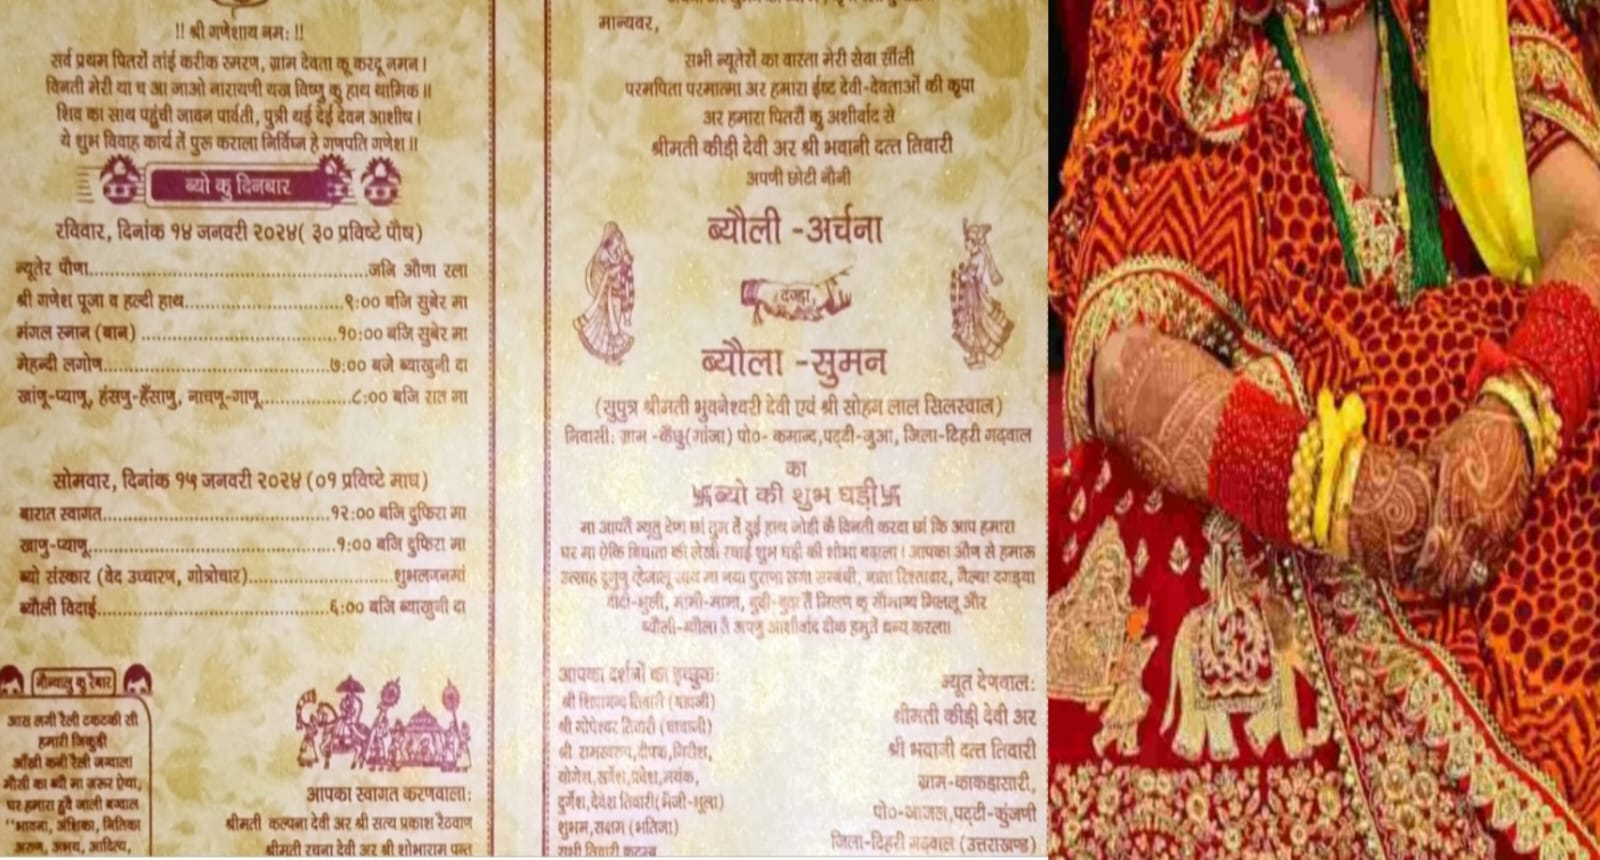 !! श्री गणेशाय नमः !!
सर्व प्रथम पितरों तांई करीक स्मरण, ग्राम देवता कू करदू नमन।
विनती मेरी या च आ जाओ नारायणी यख विष्णु कु हाथ थामिक॥
शिव का साथ पहुंची जावन पार्वती, पुत्री थई देई देवन आशीष।
ये शुभ विवाह कार्य तें पुरू कराला निर्विघ्न हे गणपति गणेश॥
ब्यो कु दिनबार
रविवार, दिनांक १४ जनवरी २०२४( ३० प्रविष्टे पौष)
न्यूतेर पौणा..............................................जनि औणा रला
श्री गणेश पूजा व हल्दी हाथ.........................९:०० बजि सुबेर मा
मंगल स्नान (बान) ................................१०:०० बजि सुबेर मा
मेहन्दी लगोण.....................................७:०० बजे ब्याखुनी दा
खांणू-प्याणू, हंसणु-हँसाणु, नाचणू-गाणू...............८:०० बजि रात मा
सोमवार, दिनांक १५ जनवरी २०२४ (०१ प्रविष्टे माघ)
बारात स्वागत.....................................१२:०० बजि दुफिरा मा
खाणु-प्याणू........................................१:०० बजि दुफिरा मा
ब्यो संस्कार (वेद उच्चारण, गोत्रोचार).......................शुभलग्नमां
ब्यौली विदाई......................................६:०० बजि ब्याखुनी दा
नौन्यालु कु रैबार
आस लगी रैली टकटकी सी
हमारी जिकुड़ी
आँखी कनी रैली जग्वाला
मौसी का ब्यौ मा जरूर ऐया,
घर हमारा हुवै जाली बग्वाल
"भावना, अंशिका, नितिका
अरुण, अभय, आदित्य,
आपका स्वागत करणवाला:
श्रीमती कल्पना देवी अर श्री सत्य प्रकाश रैठवाण
श्रीमती रचना देवी अर श्री शोभाराम पन्त
मान्यवर,
सभी न्यूतेरों का वास्ता मेरी सेवा सौंली
परमपिता परमात्मा अर हमारा ईष्ट देवी-देवताओं की कृपा
अर हमारा पितरौं कु अशीर्वाद से
श्रीमती कीड़ी देवी अर श्री भवानी दत्त तिवारी
अपणी छोटी नौनी
ब्यौली -अर्चना
दगड़ा
ब्यौला -सुमन
(सुपुत्र श्रीमती भुवनेश्वरी देवी एवं श्री सोहन लाल सिलस्वाल)
निवासी: ग्राम -कैंछु(गाजा) पो०- कमान्द,पट्टी-जुआ, जिला-टिहरी गढ़वाल
का
卐ब्यो की शुभ घड़ी卐
मा आपतैं न्यूतू देणा छां तुम तें दुई हाथ जोड़ी कै विनती करदा छां कि आप हमारा
घर मा ऐकि विधाता की लेखी रचाई शुभ घड़ी की शोभा बढ़ाला। आपका औण से हमारू
उत्साह दुगुणु व्हेजालु जाय मा नया पुराणा सगा सम्बंधी, नाता रिश्तादार, गैल्या दगड़्या
दीदी-भुली, मामी-मामा, बुढ़ी-बुढ्या तैं मिलण कू सौभाग्य मिललू और
ब्यौली-ब्यौला तैं अपणु आशीर्वाद दीक हमुतैं धन्य करला।
आपका दर्शनों का इच्छुक:
श्री शिवानन्द तिवारी (बडाजी)
श्री गोपेश्वर तिवारी (चाचाजी)
श्री रामस्वरूप,दीपक,गिरीश,
योगेश,सर्वेश,प्रवेश,मयंक,
दुर्गेश,देवेश तिवारी(भैजी-भुला)
शुभम,सक्षम (भतिजा)
सभी तिवारी कुटम्ब
न्यूत देणवाल:
श्रीमती कीड़ी देवी अर
श्री भवानी दत्त तिवारी
ग्राम-काकड़ासारी,
पो०-जाजल,पट्टी-कुंजणी
जिला-टिहरी गढ़वाल (उत्तराखण्ड)